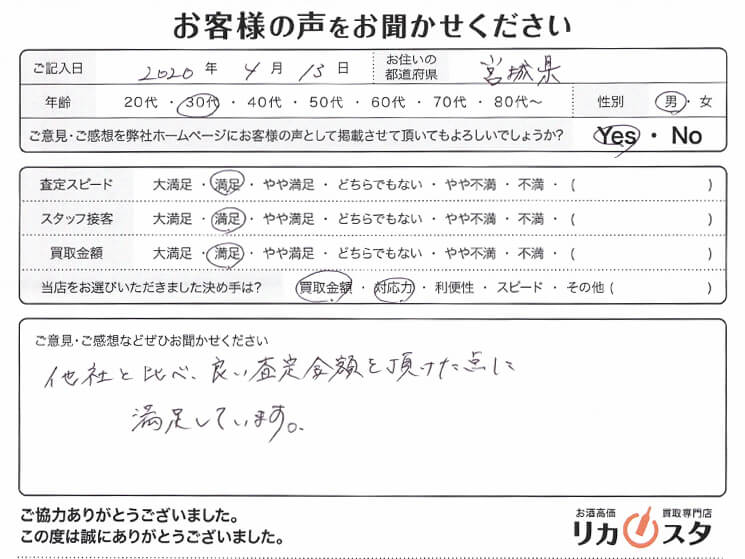 お客様の声をお聞かせください
ご記入日 2020 年 4 月 13 日 お住いの都道府県 宮城県
年齢 20代 ・ 30代 ・ 40代 ・ 50代 ・ 60代 ・ 70代 ・ 80代～ 性別 男 ・ 女
ご意見・ご感想を弊社ホームページにお客様の声として掲載させて頂いてもよろしいでしょうか? Yes ・ No
査定スピード 大満足 ・ 満足 ・ やや満足 ・ どちらでもない ・ やや不満 ・ 不満 ・ ( )
スタッフ接客 大満足 ・ 満足 ・ やや満足 ・ どちらでもない ・ やや不満 ・ 不満 ・ ( )
買取金額 大満足 ・ 満足 ・ やや満足 ・ どちらでもない ・ やや不満 ・ 不満 ・ ( )
当店をお選びいただきました決め手は? 買取金額 ・ 対応力 ・ 利便性 ・ スピード ・ その他 ( )
ご意見・ご感想などぜひお聞かせください
他社と比べ、良い査定金額を頂けた点に
満足しています。
ご協力ありがとうございました。
この度は誠にありがとうございました。
お酒高価 買取専門店
リカスタ